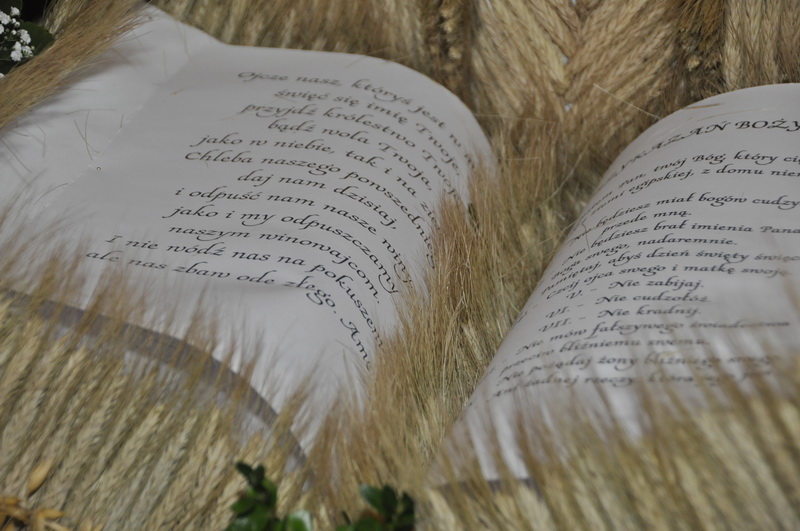 Ojcze nasz, któryś jest w n
święć się imię Twoje
przyjdź królestwo Twoje
bądź wola Twoja,
jako w niebie, tak i na
Chleba naszego powszedni
daj nam dzisiaj,
i odpuść nam nasze winy,
jako i my odpuszczamy
naszym winowajcom.
I nie wódź nas na pokuszen
ale nas zbaw ode złego. Am
YKAZAŃ BOŻY
Pan, twój Bóg, który cię
ziemi egipskiej, z domu nie
będziesz miał bogów cudzy
przede mną.
Nie będziesz brał imienia Pana
Boga swego, nadaremnie.
Pamiętaj, abyś dzień święty święci
Czcij ojca swego i matkę swoją
V. - Nie zabijaj.
VI. - Nie cudzołóż.
VII. - Nie kradnij.
Nie mów fałszywego świadectwa
przeciw bliźniemu swemu.
Nie pożądaj żony bliźniego swego.
Ani żadnej rzeczy, która